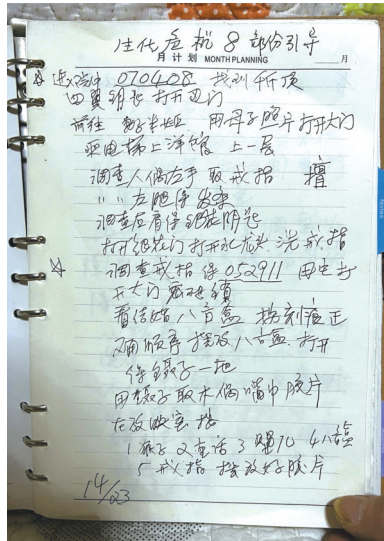 生化危机8部份引导
月 计 划 MONTH PLANNING 月
进入 070408 找到千斤顶
四翼钥匙打开边门
前往 用母子照片打开大门
乘电梯上洋馆 上一层
调查人偶左手取戒指
〃〃 左腿得发条
调查后背得 钥匙
打开 门打开水龙头洗戒指
调查戒指得052911 用它打
开大门 锁
看 八音盒 按刻痕正
确顺序摆放八音盒 打开
得镊子一把
用镊子取木偶嘴巾胶片
在放映室按
1 2童话 3 4八音盒
5戒指 摆放好胶片
14/23